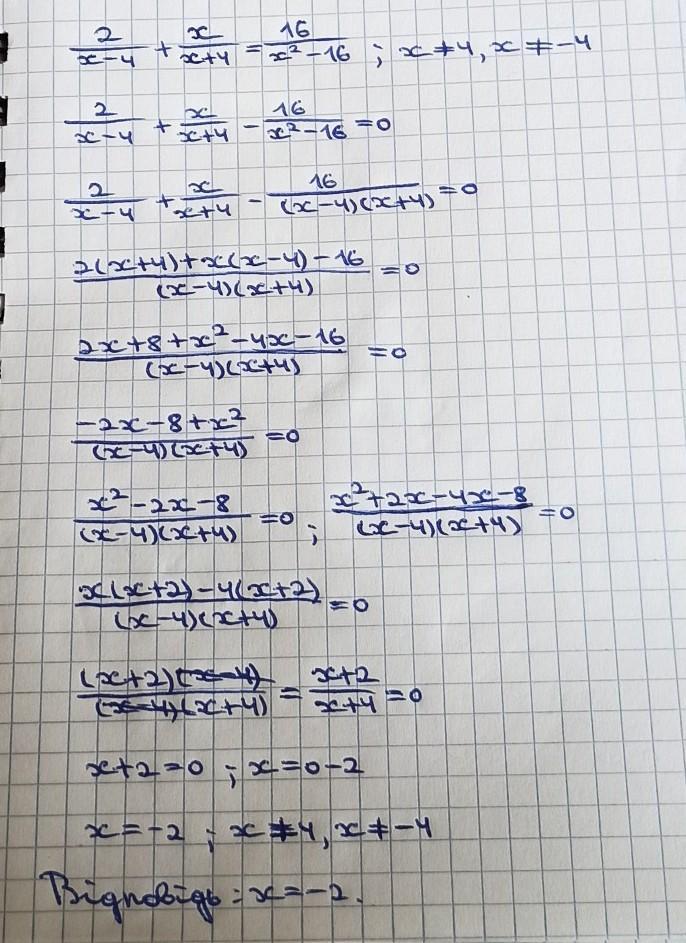 2/(x-4) + x/(x+4) = 16/(x²-16) ; x ≠ 4, x ≠ -4
2/(x-4) + x/(x+4) - 16/(x²-16) = 0
2/(x-4) + x/(x+4) - 16/((x-4)(x+4)) = 0
(2(x+4)+x(x-4)-16)/((x-4)(x+4)) = 0
(2x+8+x²-4x-16)/((x-4)(x+4)) = 0
(-2x-8+x²)/((x-4)(x+4)) = 0
(x²-2x-8)/((x-4)(x+4)) = 0 ; (x²+2x-4x-8)/((x-4)(x+4)) = 0
(x(x+2)-4(x+2))/((x-4)(x+4)) = 0
((x+2)(x-4))/((x-4)(x+4)) = (x+2)/(x+4) = 0
x+2=0 ; x=0-2
x=-2 ; x ≠ 4, x ≠ -4
Відповідь: x=-2.